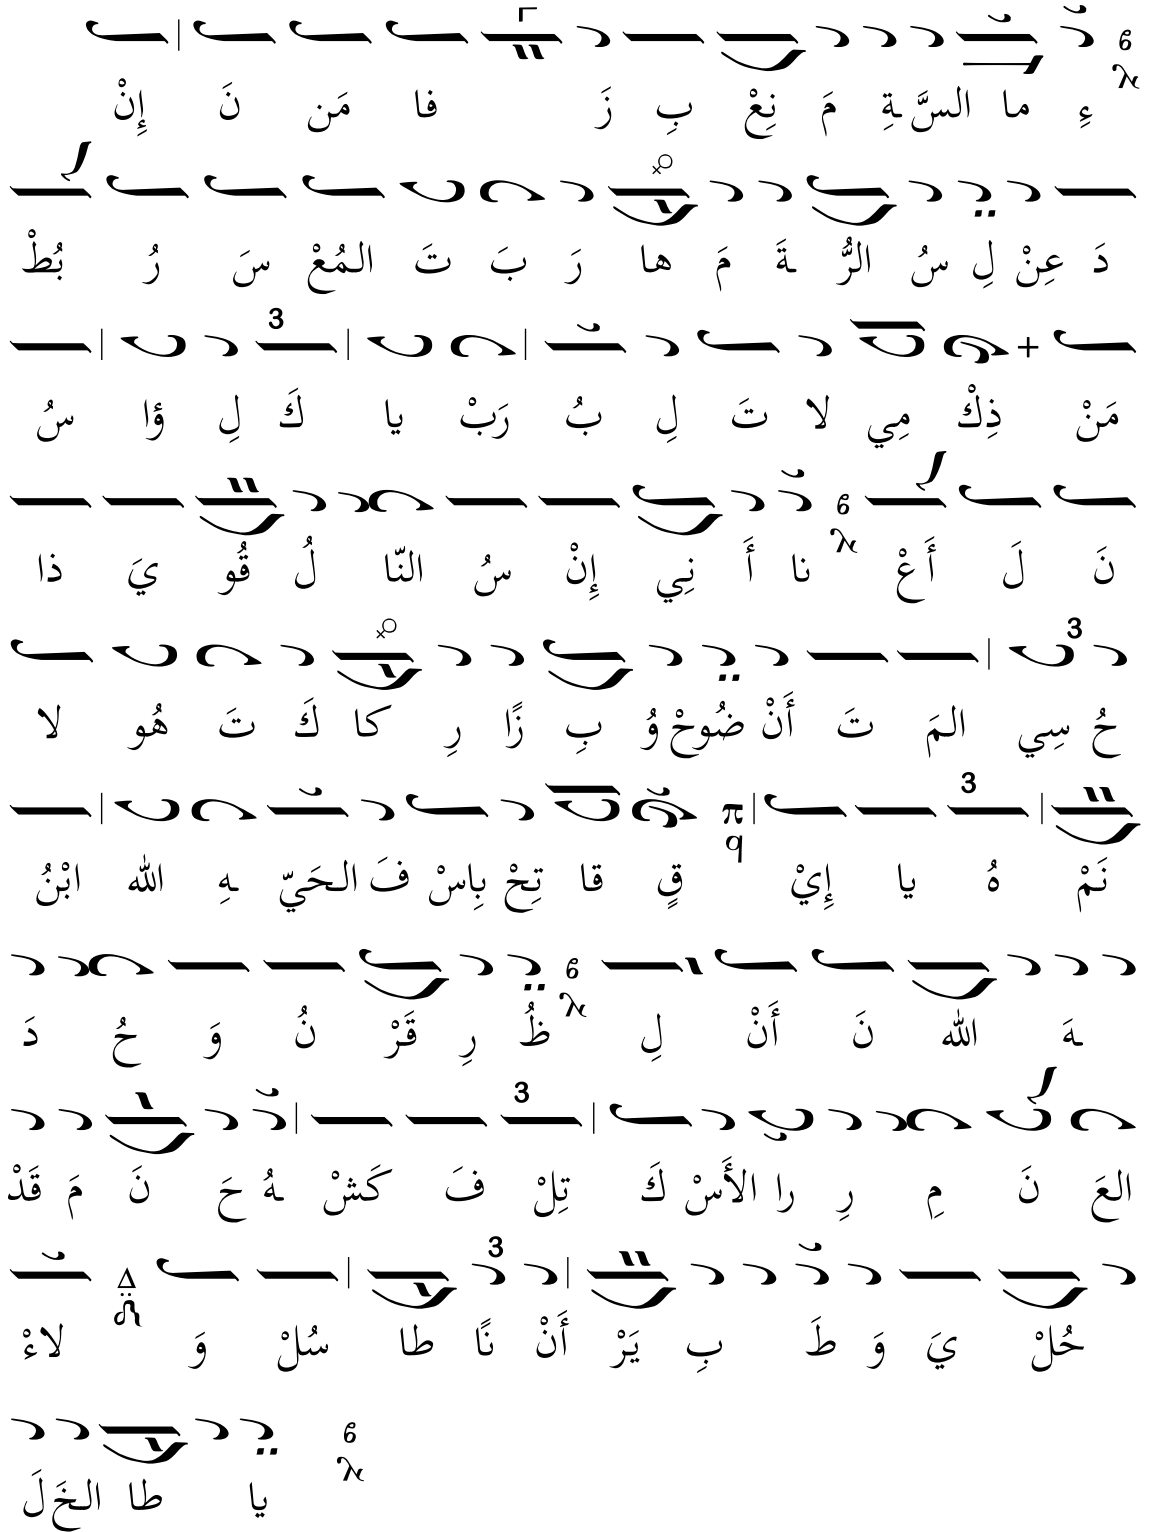 إِنْ نَ مَن فا زَ بِ نِعْ مَ ـةِ السَّ ما ءِ
بُطْ رُ سَ المُعْ تَ بَ رَ ها مَ ـةَ الرُّ سُ لِ عِنْ دَ
سُ ؤا لِ كَ يا رَبْ بُ لِ تَ لا مِي ذِكْ مَنْ
ذا يَ قُو لُ النّا سُ إِنْ نِي أَ نا أَعْ لَ نَ
لا هُو تَ كَ كا رِ زًا بِ وُ ضُوحْ أَنْ تَ المَ سِي حُ
ابْنُ الله ـهِ الحَيّ فَ بِاسْ تِحْ قا قٍ إِيْ يا هُ نَمْ
دَ حُ وَ نُ قَرْ رِ ظُ لِ أَنْ نَ الله ـهَ
قَدْ مَ نَ حَ ـهُ كَشْ فَ تِلْ كَ الأَسْ را رِ مِ نَ العَ
لاءْ وَ سُلْ طا نًا أَنْ يَرْ بِ طَ وَ يَ حُلْ
لَ الخَ طا يا